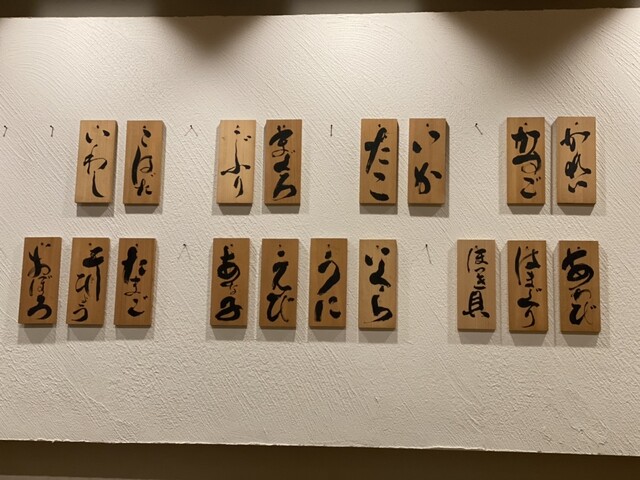 かれい
かすご
いか
たこ
まぐろ
ぶり
こはだ
いわし
あわび
はまぐり
ほっき貝
いくら
うに
えび
あな子
たまご
干ぴょう
おぼろ